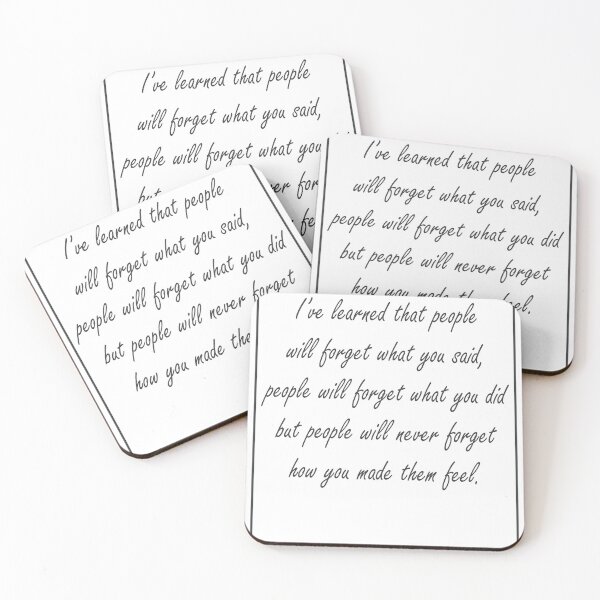 I've learned that people
will forget what you said,
people will forget what you
but
I've learned that people
will forget what you said,
people will forget what you did
but people will never forget
how you made them feel.
I've learned that people
will forget what you said,
people will forget what you did
but people will never forget
how you made
I've learned that people
will forget what you said,
people will forget what you did
but people will never forget
how you made them feel.